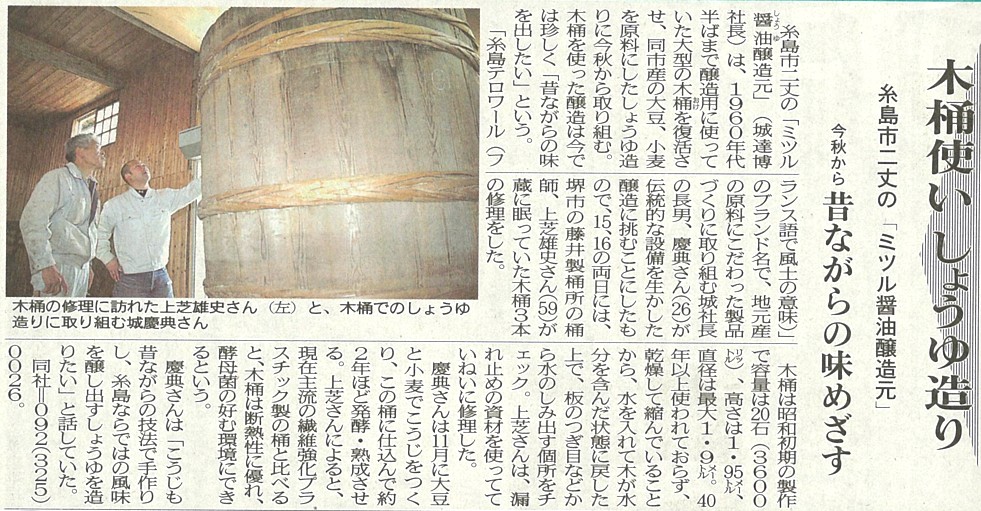 木桶使いしょうゆ造り
糸島市二丈の「ミツル醤油醸造元」
今秋から 昔ながらの味めざす
糸島市二丈の「ミツル
醤油醸造元」（城達博
しょうゆ
社長）は、1960年代
半ばまで醸造用に使って
いた大型の木桶を復活さ
おけ
せ、同市産の大豆、小麦
を原料にしたしょうゆ造
りに今秋から取り組む。
木桶を使った醸造は今で
は珍しく「昔ながらの味
を出したい」という。
「糸島テロワール（フ
ランス語で風土の意味）」
のブランド名で、地元産
の原料にこだわった製品
づくりに取り組む城社長
の長男、慶典さん(26)が
伝統的な設備を生かした
醸造に挑むことにしたも
ので、15、16の両日には、
堺市の藤井製桶所の桶
師、上芝雄史さん(59)が
蔵に眠っていた木桶3本
の修理をした。
木桶は昭和初期の製作
で容量は20石（3600
㍑）、高さは1・95㍍、
直径は最大1・9㍍。40
年以上使われておらず、
乾燥して縮んでいること
から、水を入れて木が水
分を含んだ状態に戻した
上で、板のつぎ目などか
ら水のしみ出す個所をチ
ェック。上芝さんは、漏
れ止めの資材を使ってて
いねいに修理した。
慶典さんは11月に大豆
と小麦でこうじをつく
り、この桶に仕込んで約
2年ほど発酵・熟成させ
る。上芝さんによると、
現在主流の繊維強化プラ
スチック製の桶と比べる
と、木桶は断熱性に優れ、
酵母菌の好む環境にでき
るという。
慶典さんは「こうじも
昔ながらの技法で手作り
し、糸島ならではの風味
を醸し出すしょうゆを造
りたい」と話していた。
同社＝092（325）
0026。
木桶の修理に訪れた上芝雄史さん（左）と、木桶でのしょうゆ
造りに取り組む城慶典さん